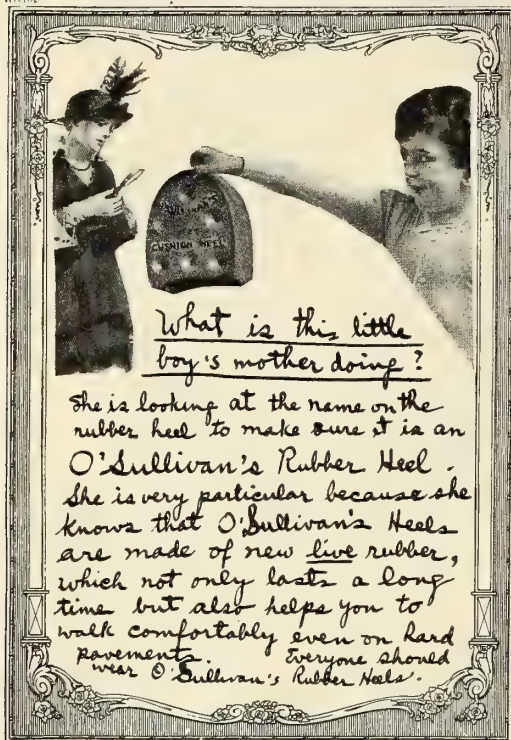 O'SULLIVAN'S
CUSHION HEEL
What is this little
boy's mother doing?
She is looking at the name on the
rubber heel to make sure it is an
O'Sullivan's Rubber Heel.
She is very particular because she
knows that O'Sullivan's Heels
are made of new live rubber,
which not only lasts a long
time but also helps you to
walk comfortably even on hard
pavements. Everyone should
wear O'Sullivan's Rubber Heels.